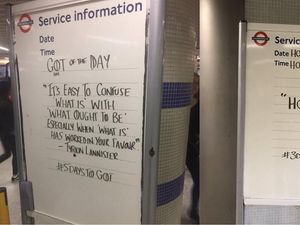 Service information
Date
Time
GOT OF THE DAY
"IT'S EASY TO CONFUSE
'WHAT IS' WITH
'WHAT OUGHT TO BE'
ESPECIALLY WHEN 'WHAT IS'
HAS WORKED IN YOUR FAVOUR"
- TYRION LANNISTER
#5DAYSTOGOT
Servic
Date HO
Time HO
"HO